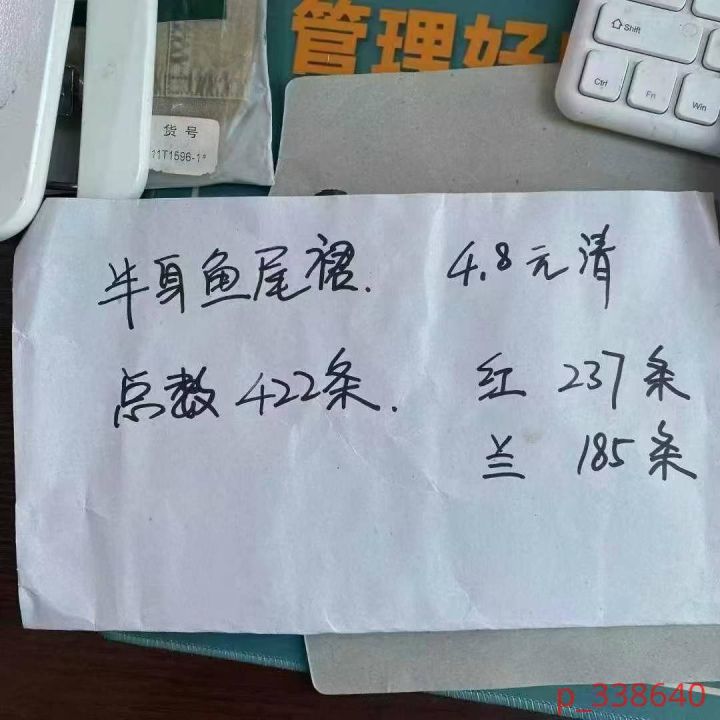 管理好
Shift
Ctrl
Fn
Win
货号
11T1596-1#
半身鱼尾裙. 4.8元清
点数422条. 红 237条
兰 185条
p_338640